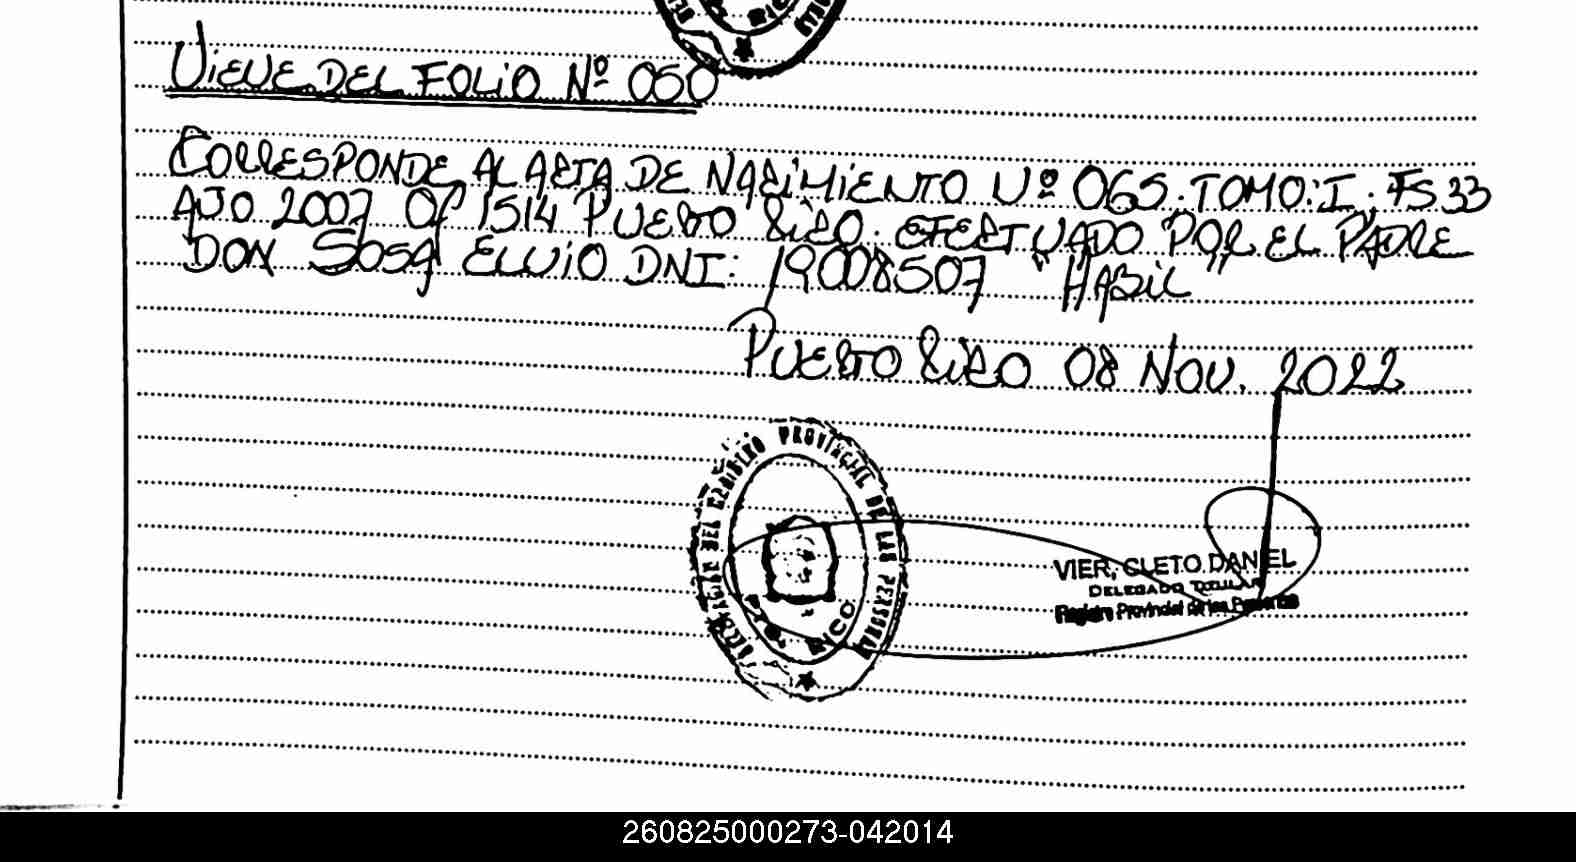 VIENE DEL FOLIO Nº 050
CORRESPONDE AL ACTA DE NACIMIENTO Nº 065. TOMO: I. FS 33
AÑO 2007 Of 1514 PUERTO RICO. EFECTUADO POR EL PADRE
DON SOSA ELVIO DNI: 19008507 "HABIL"
PUERTO RICO 08 NOV. 2022
PROVINCIAL DE LAS PERSONAS
PTO. RICO
VIER, CLETO DANIEL
DELEGADO TITULAR
Registro Provincial de las Personas
260825000273-042014